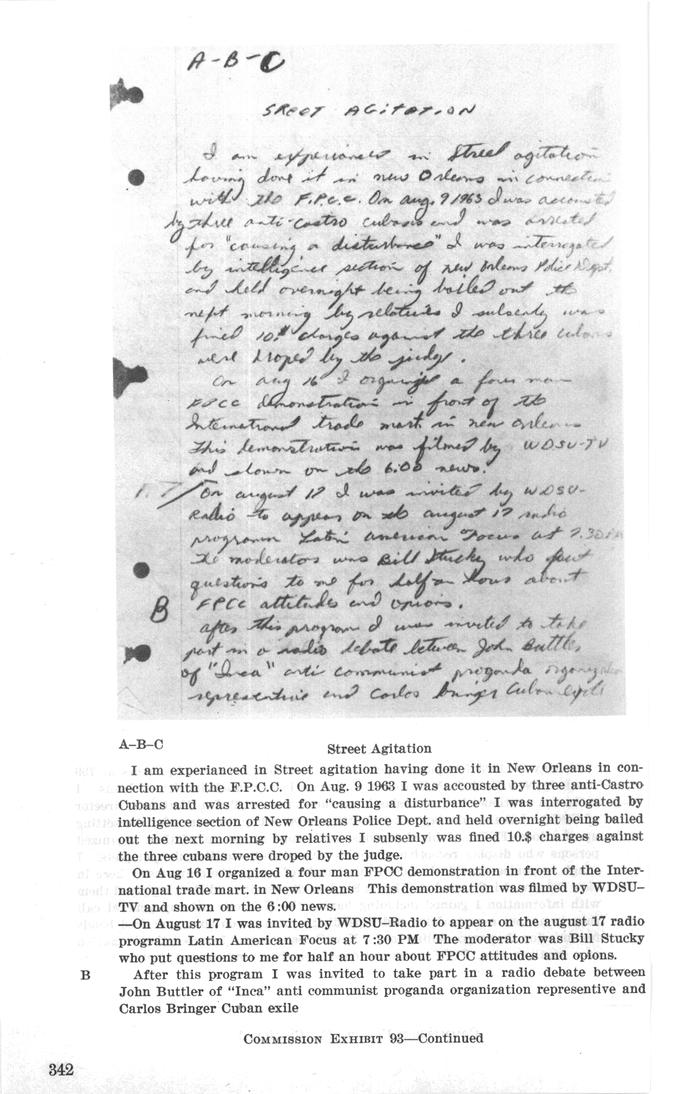 A-B-C
SREET AGITATION
I am experianced in Street agitation
having done it in new Orleans in connection
with the F.P.C.C. On aug. 9 1963 I was accousted
by three anti-castro cubans and was arrested
for "causing a disturbance" I was interrogated
by intelligence section of new Orleans Police Dept.
and held overnight being bailed out the
next morning by relatives I subsenly was
fined 10.$ charges against the three cubans
were droped by the judge.
On aug 16 I organized a four man
FPCC demonstration in front of the
International trade mart. in new Orleans
This demonstration was filmed by WDSU-TV
and shown on the 6:00 news.
On august 17 I was invited by WDSU-
Radio to appear on the august 17 radio
programn Latin american Focus at 7:30 PM
The moderator was Bill Stucky who put
questions to me for half an hour about
B FPCC attitudes and opions.
after this program I was invited to take
part in a radio debate between John Buttler
of "Inca" anti communist proganda organization
representive and Carlos Bringer Cuban exile
A–B–C
Street Agitation
I am experianced in Street agitation having done it in New Orleans in con-
nection with the F.P.C.C. On Aug. 9 1963 I was accousted by three anti-Castro
Cubans and was arrested for “causing a disturbance” I was interrogated by
intelligence section of New Orleans Police Dept. and held overnight being bailed
out the next morning by relatives I subsenly was fined 10.$ charges against
the three cubans were droped by the judge.
On Aug 16 I organized a four man FPCC demonstration in front of the Inter-
national trade mart. in New Orleans This demonstration was filmed by WDSU–
TV and shown on the 6:00 news.
—On August 17 I was invited by WDSU–Radio to appear on the august 17 radio
programn Latin American Focus at 7:30 PM The moderator was Bill Stucky
who put questions to me for half an hour about FPCC attitudes and opions.
B After this program I was invited to take part in a radio debate between
John Buttler of “Inca” anti communist proganda organization representive and
Carlos Bringer Cuban exile
COMMISSION EXHIBIT 93—Continued
342